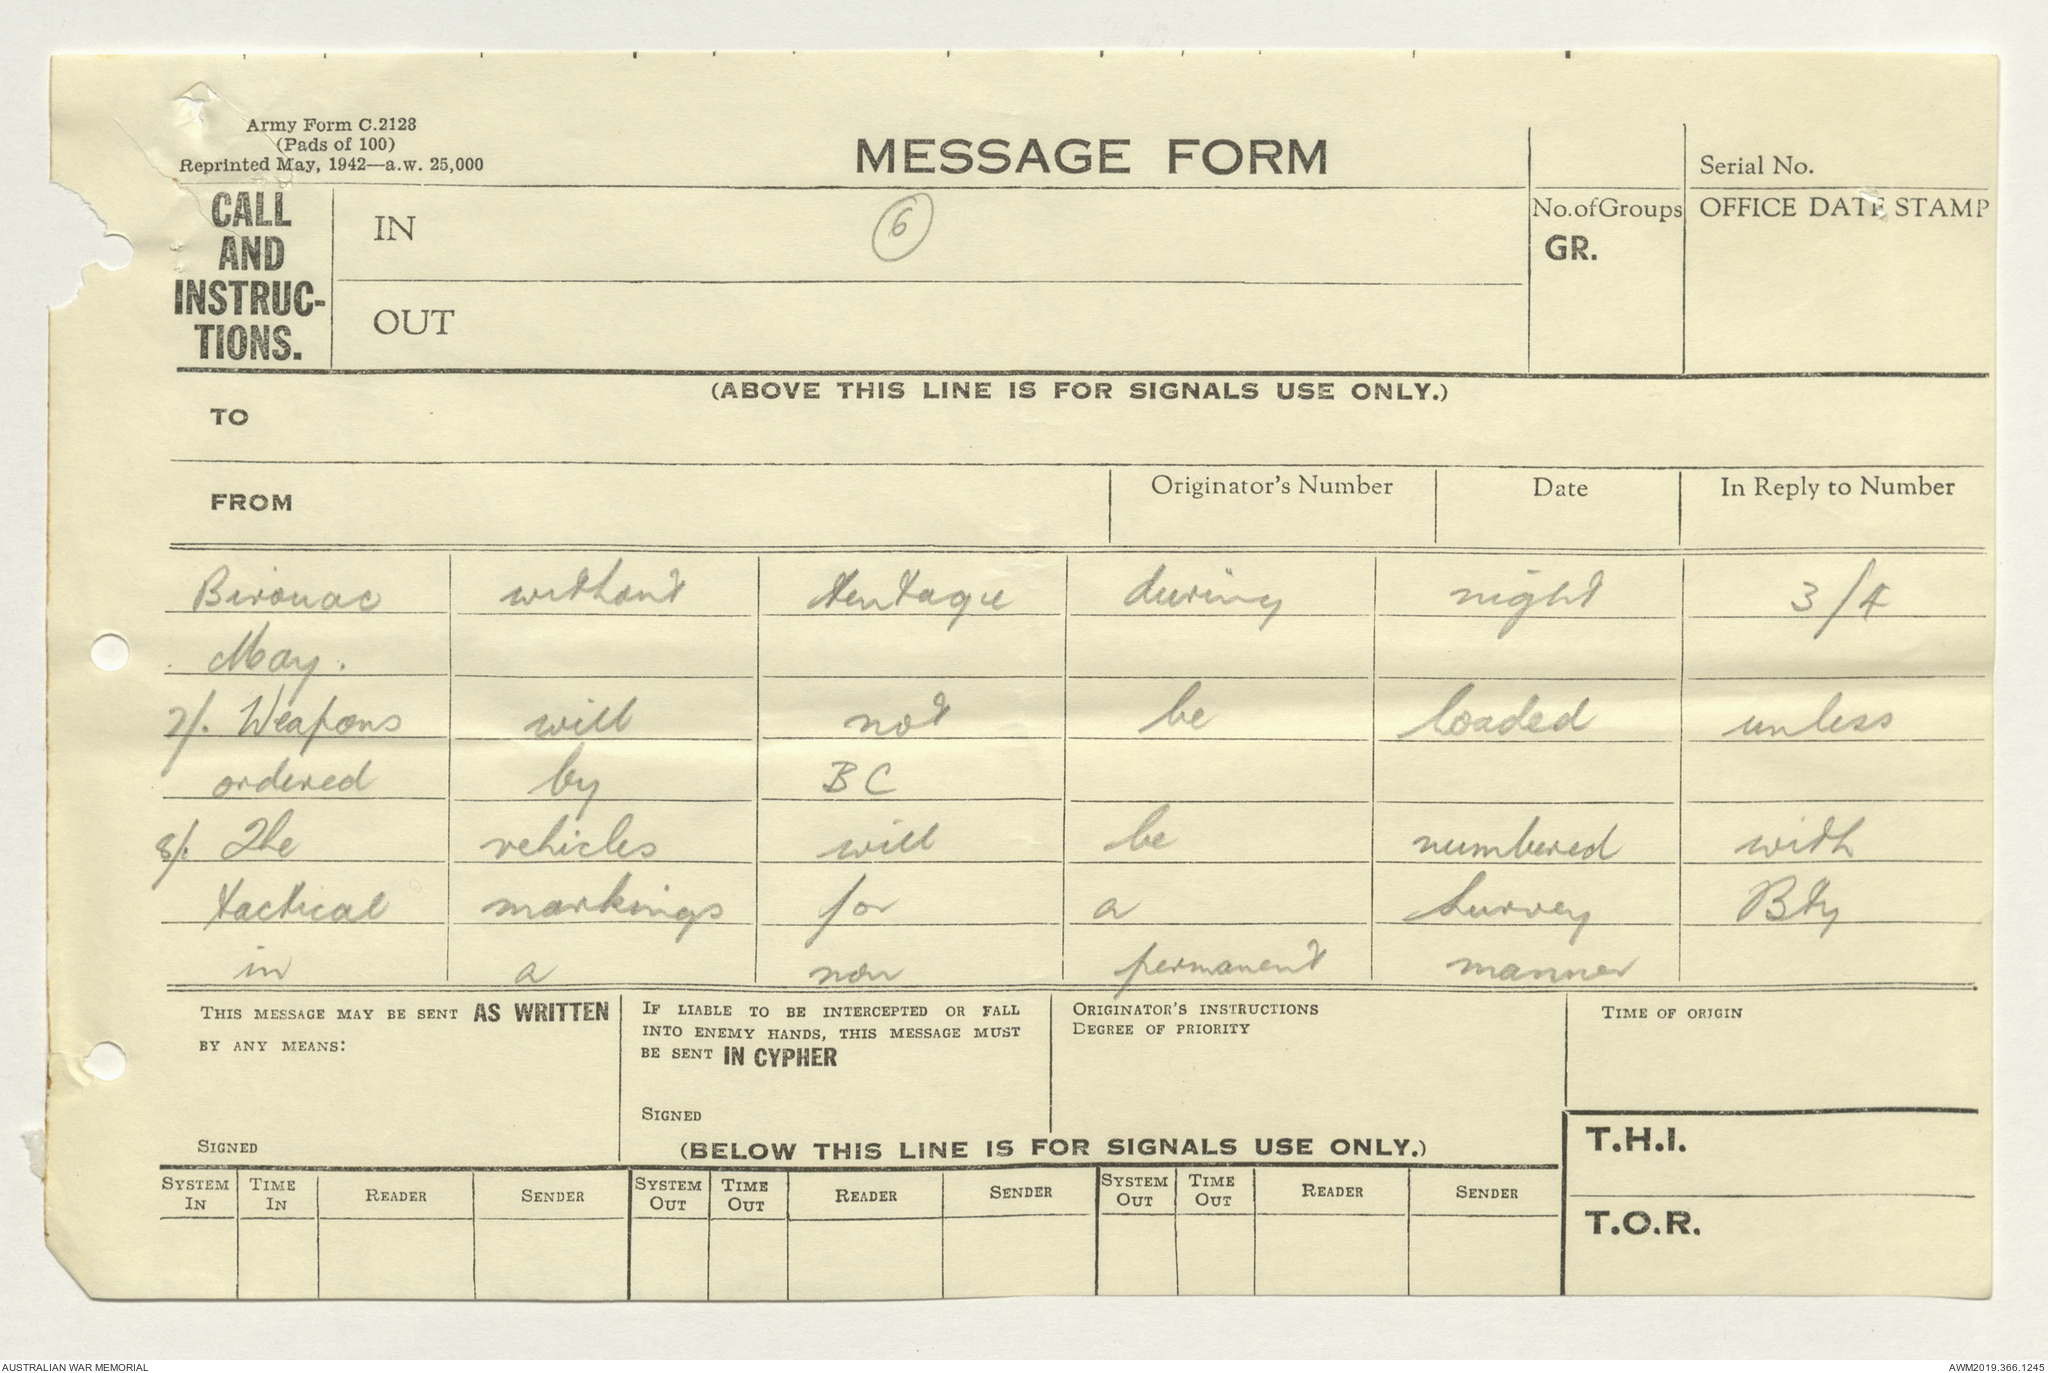 Army Form C.2128
(Pads of 100)
Reprinted May, 1942—a.w. 25,000
MESSAGE FORM
Serial No.
CALL
AND
INSTRUC-
TIONS.
IN
6
OUT
No. of Groups
GR.
OFFICE DATE STAMP
(ABOVE THIS LINE IS FOR SIGNALS USE ONLY.)
TO
FROM
Originator's Number
Date
In Reply to Number
Bivouac without tentage during night 3/4
May.
7/. Weapons will not be loaded unless
ordered by BC
8/. The vehicles will be numbered with
tactical markings for a Survey Bty
in a non permanent manner
THIS MESSAGE MAY BE SENT AS WRITTEN
BY ANY MEANS:
SIGNED
IF LIABLE TO BE INTERCEPTED OR FALL
INTO ENEMY HANDS, THIS MESSAGE MUST
BE SENT IN CYPHER
SIGNED
ORIGINATOR'S INSTRUCTIONS
DEGREE OF PRIORITY
TIME OF ORIGIN
(BELOW THIS LINE IS FOR SIGNALS USE ONLY.)
T.H.I.
T.O.R.
SYSTEM IN
TIME IN
READER
SENDER
SYSTEM OUT
TIME OUT
READER
SENDER
SYSTEM OUT
TIME OUT
READER
SENDER
AUSTRALIAN WAR MEMORIAL
AWM2019.366.1245